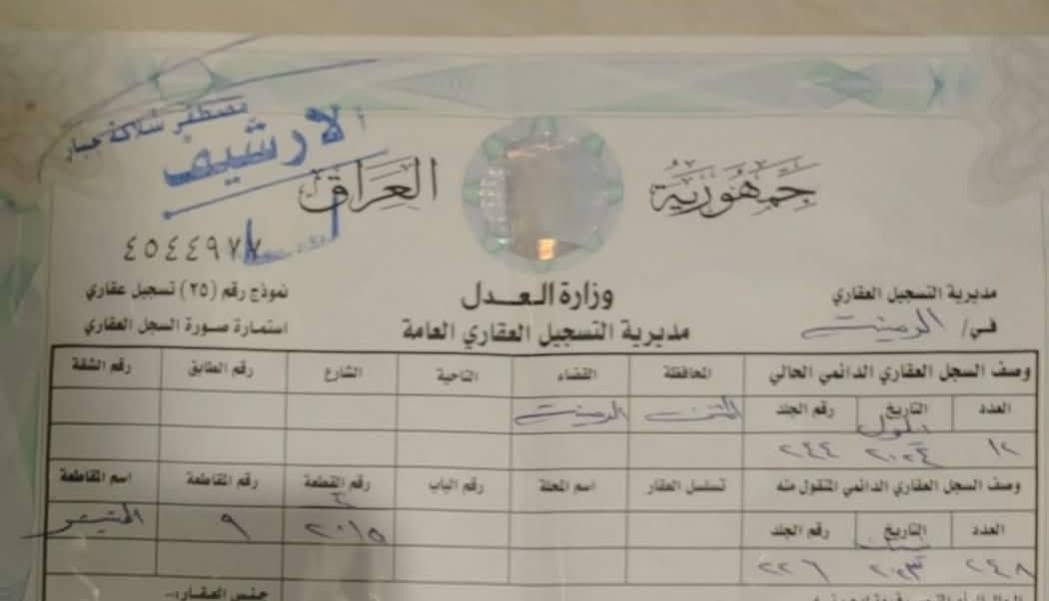 مصطفى شلاكة جبار
الارشيف
جمهورية العراق
٤٥٤٤٩٧٧
مديرية التسجيل العقاري
في/ الرميثة
وزارة العدل
مديرية التسجيل العقاري العامة
نموذج رقم (٢٥) تسجيل عقاري
استمارة صورة السجل العقاري
وصف السجل العقاري الدائمي الحالي المحافظة القضاء الناحية الشارع رقم الطابق رقم الشقة
العدد التاريخ رقم الجلد المثنى الرميثة
١٢ ايلول ٢٠٢٤ ٢٤٤
وصف السجل العقاري الدائمي المنقول منه تسلسل العقار اسم المحلة رقم الباب رقم القطعة رقم المقاطعة اسم المقاطعة
العدد التاريخ رقم الجلد ٢٠١٥ ٩
٢٤٨ ٢٠٢٣ ٢٢٦
جنس العقار:-